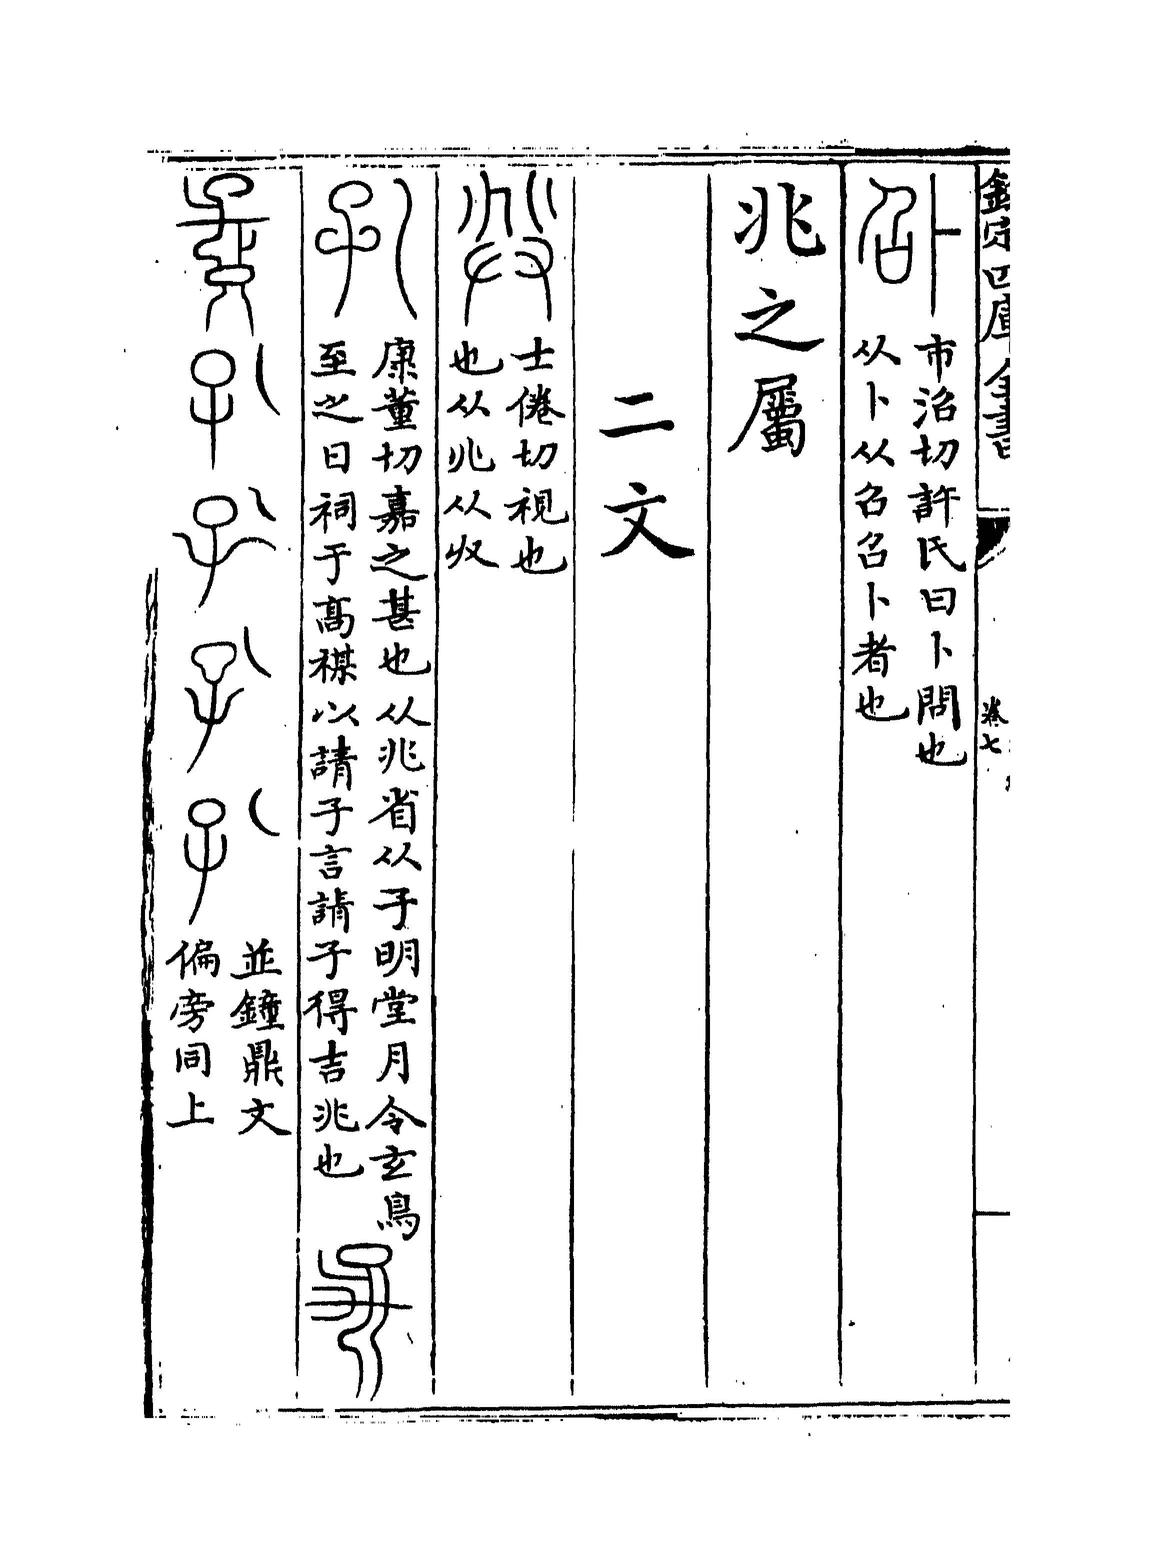 欽定四庫全書
卷七
市沼切許氏曰卜問也
从卜从召召卜者也
兆之屬
二文
士倦切視也
也从兆从収
康董切嘉之甚也从兆省从子明堂月令玄鳥
至之日祠于高禖以請子言請子得吉兆也
並鐘鼎文
偏旁同上